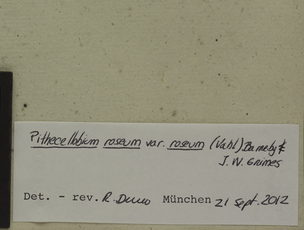 Pithecellobium roseum var. roseum (Vahl) Barneby &
J. W. Grimes
Det. - rev. R. Duno München 21 sept. 2012